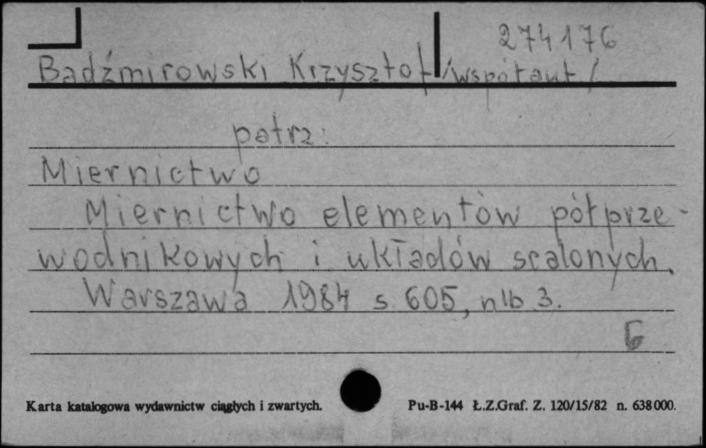 274176
Badźmirowski Krzysztof /współaut/
patrz:
Miernictwo
Miernictwo elementów półprze-
wodnikowych i układów scalonych.
Warszawa 1984 s. 605, nlb 3.
G
Karta katalogowa wydawnictw ciągłych i zwartych. Pu-B-144 Ł.Z.Graf. Z. 120/15/82 n. 638000.